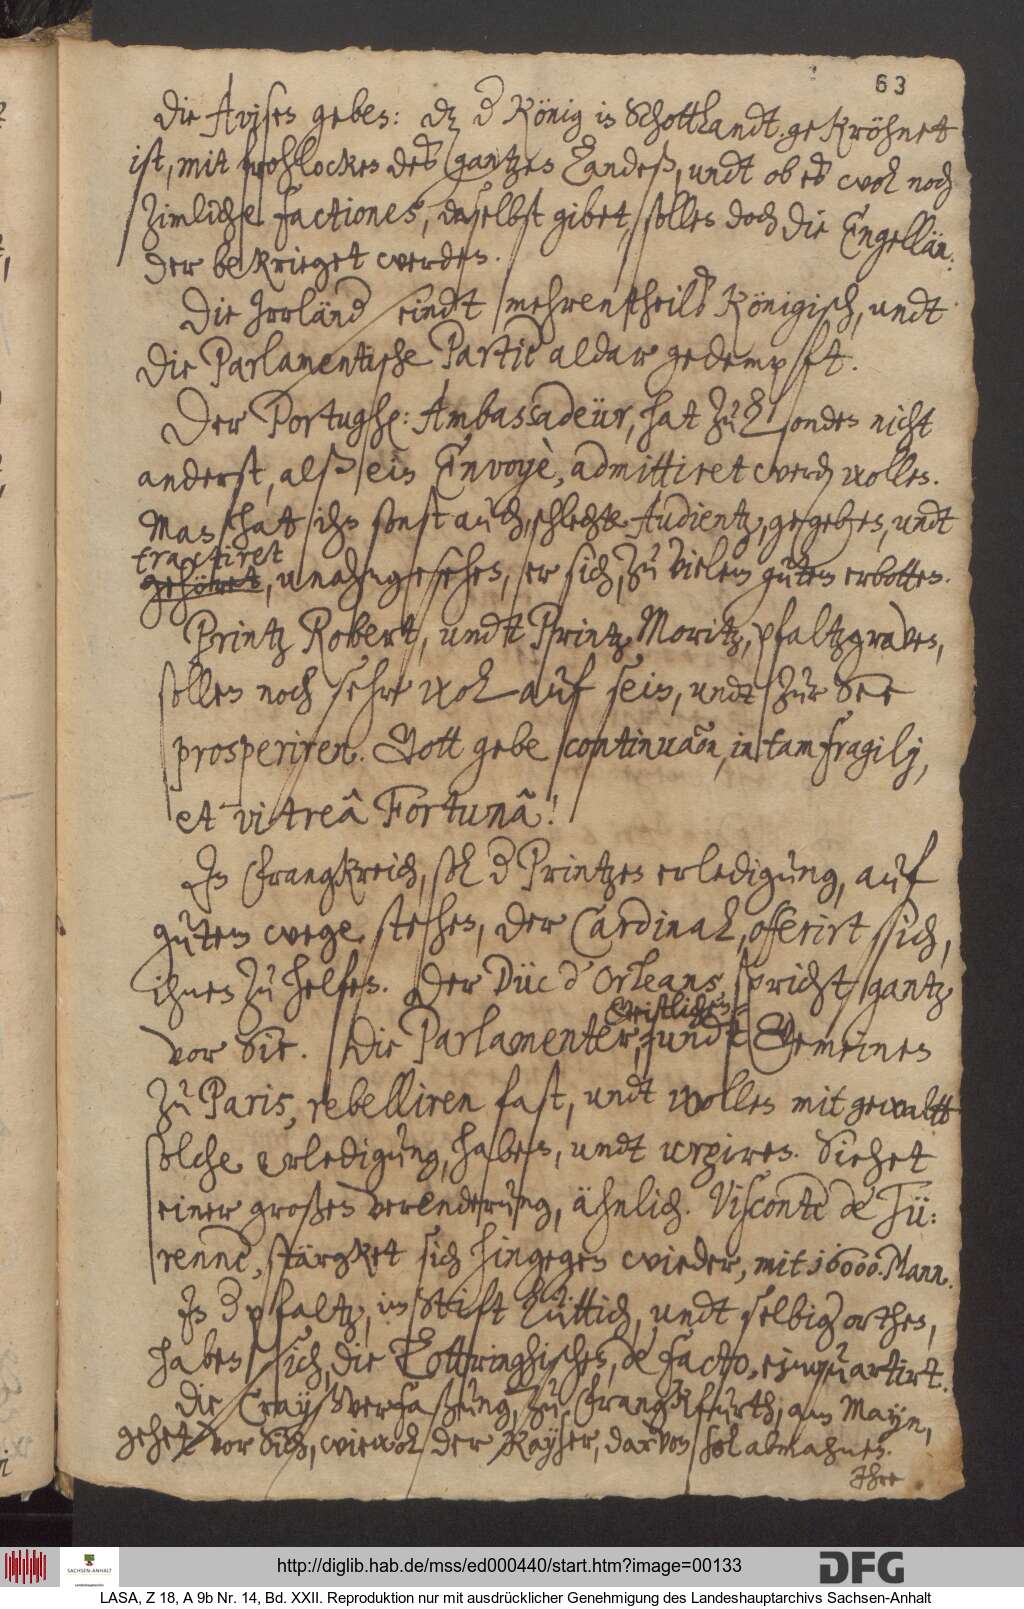 63
Die Avisen geben: dz d König in Schottlandt gekröhnet
ist, mit frohlocken deß gantzen Landeß, undt ob es wol noch
zimliche factiones, daselbst gibet, sollen doch die Engellän:
der bekrieget werden.
Die Irrländ seindt mehrentheilß Königisch, undt
die Parlamentische Partie aldar gedempft.
Der Portughs: Ambassadeür, hat zu Londen nicht
anderst, alß ein Envoyè, admittiret werden wollen.
Man hatt ihn sonst auch, schlechte Audientz, gegeben, undt
tractiret
gehöret, unangesehen, er sich, zu vielem gutem erbotten.
Printz Robert, undt Printz Moritz, pfaltzgraven,
sollen noch sehr wol auf sein, undt zur See
prosperiren. Gott gebe continuation, in tam fragilj,
et vitreâ Fortunâ!
In Frangkreich, sol d Printzen erledigung, auf
gutem wege stehen, der Cardinal, offerirt sich,
ihnen zu helfen. Der Düc d'Orleans, spricht gantz
vor Sie. Die Parlamenter, undt Gemeinen
Geistlichen
zu Paris, rebelliren fast, undt wollen mit gewaltt
solche erledigung, haben, undt urgiren. Siehet
einer großen verenderung, ähnlich. Visconte de Tü:
renne, stärgket sich hingegen wieder, mit 16000. Mann.
In d pfaltz, im Stift Lüttich, undt selbig orthen,
haben sich, die Lottringhischen, de facto, einquartirt.
die Crayßverfaßung, zu Frangkfurth, am Mayn,
gehet vor Sich, wiewol der Kayser, darvon sol abmahnen.
Ihre
http://diglib.hab.de/mss/ed000440/start.htm?image=00133
SACHSEN-ANHALT
DFG
LASA, Z 18, A 9b Nr. 14, Bd. XXII. Reproduktion nur mit ausdrücklicher Genehmigung des Landeshauptarchivs Sachsen-Anhalt